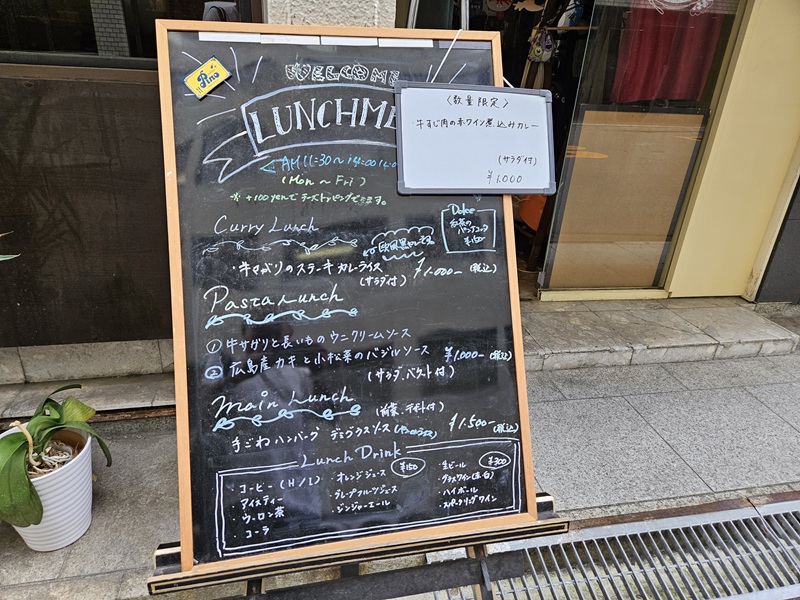 Pino
WELCOME
LUNCHME
AM 11:30～14:00
(Mon～Fri)
※ +100yenでチーズトッピングできます。
〈数量限定〉
・牛すじ肉の赤ワイン煮込みカレー
(サラダ付)
¥1.000
Dolce
紅茶の
パンナコッタ
¥150
Curry Lunch
欧風黒カレーです
・牛サガリのステーキカレーライス ¥1.000- (税込)
(サラダ付)
Pasta Lunch
① 牛サガリと長いものウニクリームソース
② 広島産カキと小松菜のバジルソース ¥1.000- (税込)
(サラダ、バケット付)
Main Lunch (前菜、デザート付)
手ごねハンバーグ デミグラスソース ¥1.500- (税込)
Lunch Drink
・コーヒー(H/I)
・アイスティー
・ウーロン茶
・コーラ
・オレンジジュース ¥150
・グレープフルーツジュース
・ジンジャーエール
・生ビール ¥300
・グラスワイン(赤・白)
・ハイボール
・スパークリングワイン